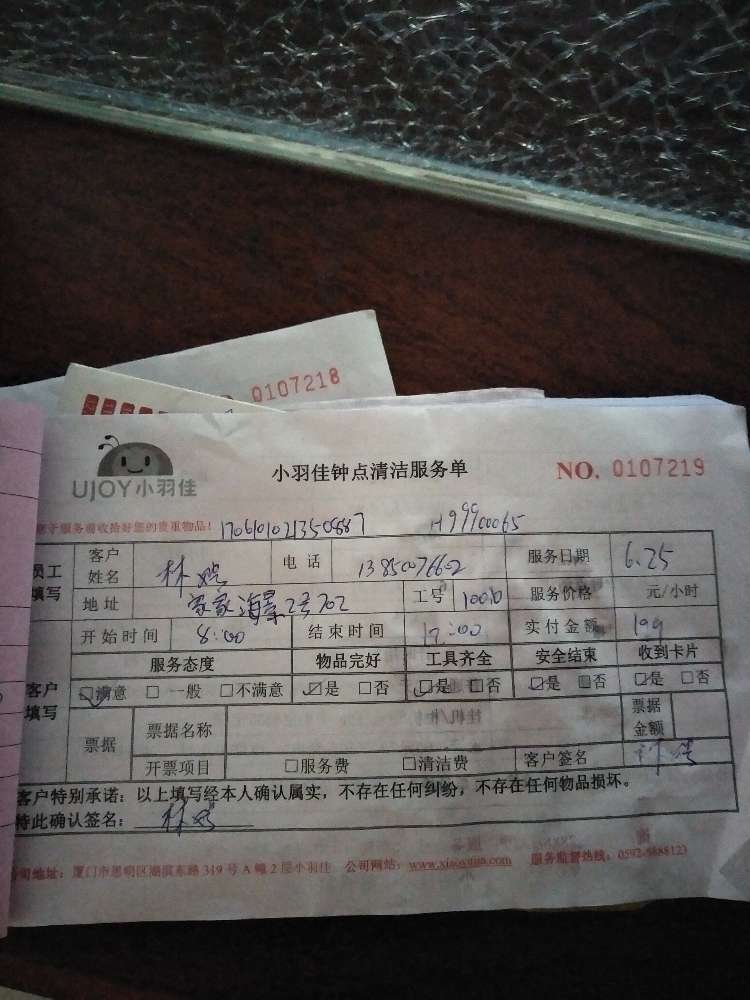 0107218
UJOY小羽佳
小羽佳钟点清洁服务单
NO. 0107219
于服务验收拾好您的贵重物品! H99900065
员工填写
客户姓名 林 电话 服务日期 6.25
地址 家家海景2号702 工号 10010 服务价格 元/小时
客户填写
开始时间 8:00 结束时间 12:00 实付金额 199
服务态度 物品完好 工具齐全 安全结束 收到卡片
满意 □ 一般 □不满意 是 □否 是 □否 是 否 是 □否
票据 票据名称 票据金额
开票项目 □服务费 □清洁费 客户签名 林
客户特别承诺:以上填写经本人确认属实,不存在任何纠纷,不存在任何物品损坏。
特此确认签名: 林
公司地址:厦门市思明区湖滨东路 319 号 A 幢 2 层小羽佳 公司网站: 服务监督热线: